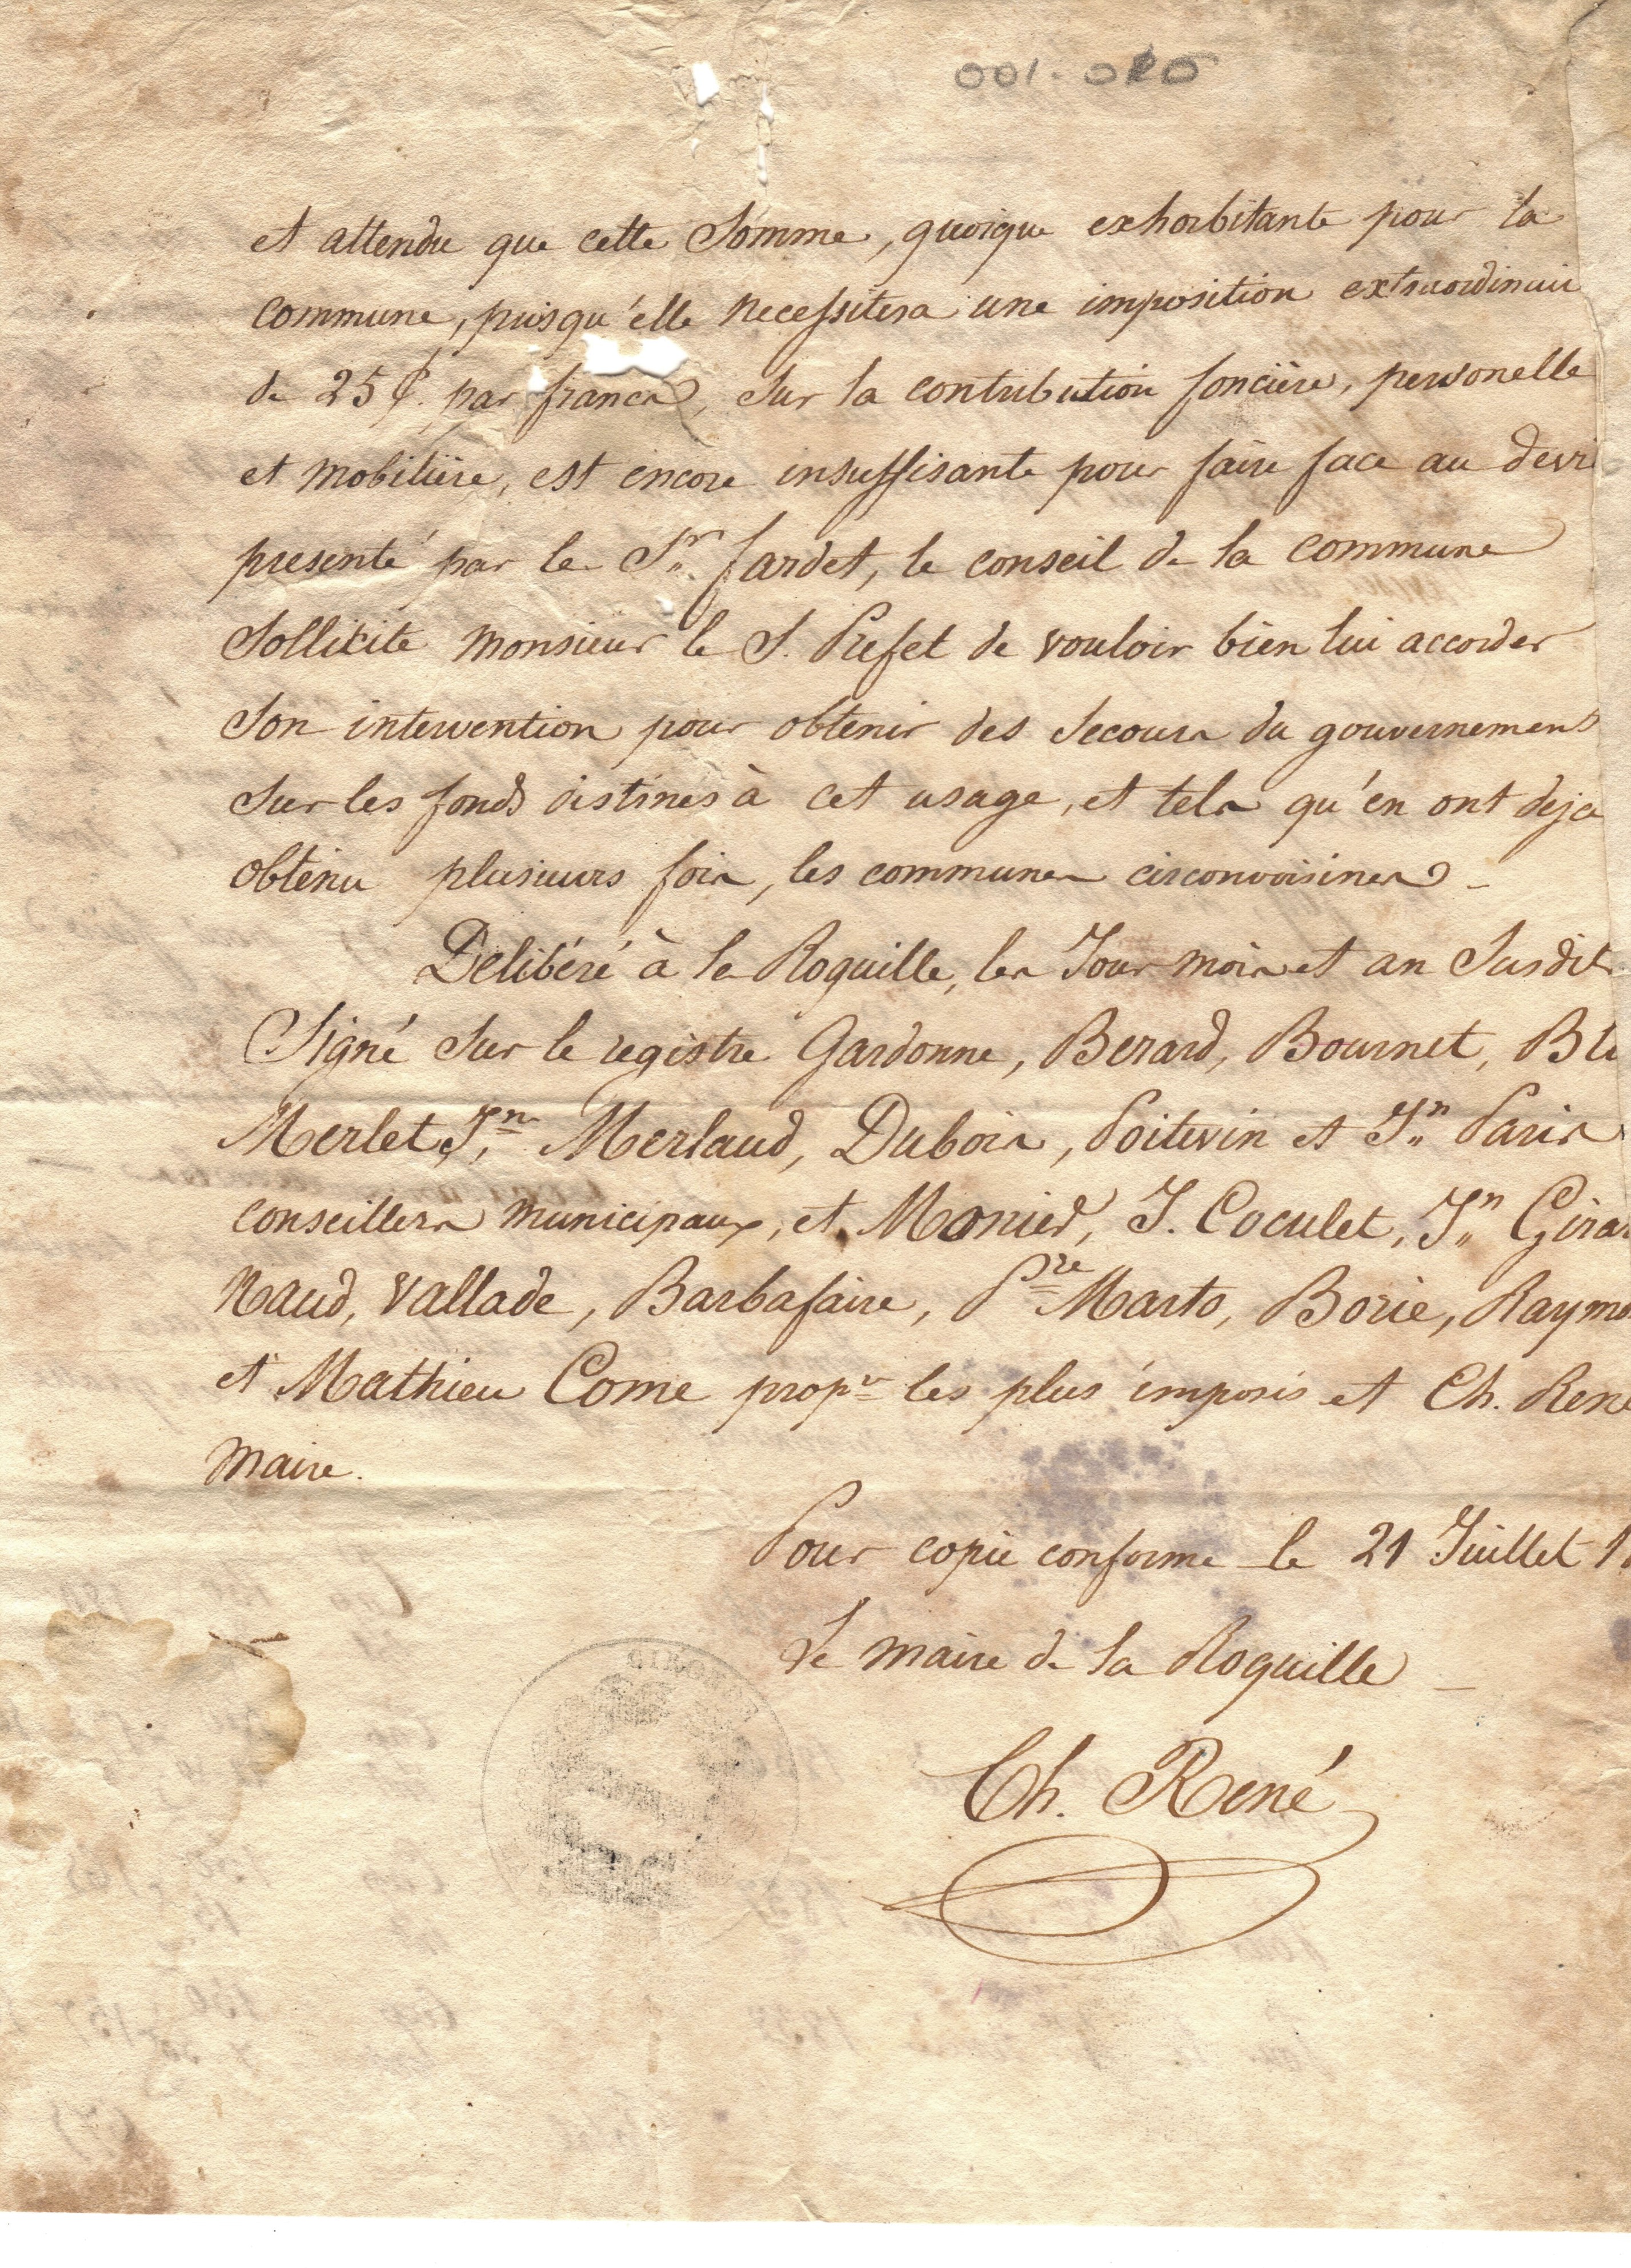 001-020
et attendu que cette Somme, quoique exhorbitante pour la
commune, puisqu'elle necessitera une imposition extraordinair
de 25 C. par francs, Sur la contribution foncière, personelle
et mobilière, est encore insuffisante pour faire face au devi
presenté par le Sr. Jardet, le conseil de la commune
Sollicite monsieur le S. Prefet de vouloir bien lui accorder
Son intervention pour obtenir des Secours du gouvernement
Sur les fonds distinés à cet usage, et tels qu'en ont deja
obtenu plusieurs fois, les communes circonvoisines -
Délibéré à la Roquille, les Jour mois et an Susdits
Signé Sur le registre Gardonne, Berard, Bournet, Bl
Merlet, Jn. Merlaud, Dubois, Poitevin et Jn. Paris
conseillers municipaux, et Monier, J. Coculet, Jn. Girau
Naud, Vallade, Barbafaire, Pre Marto, Borie, Raymo
et Mathieu Come propr. les plus imposés et Ch. René
maire.
Pour copie conforme le 21 Juillet 1
Le maire de la Roquille -
Ch. René